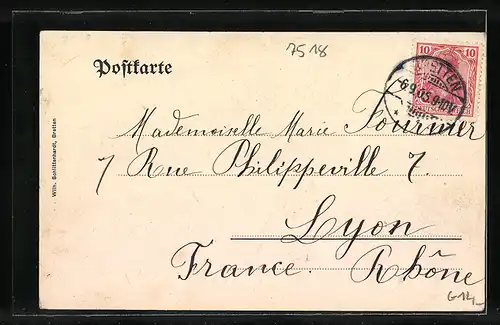 7518
Postkarte
10 10
BRETTEN
6.9.05.9-10V.
Mademoiselle Marie Fournier
7 Rue Philippeville 7.
Lyon
France. Rhône
G14,-
Wilh. Schlittenhardt, Bretten